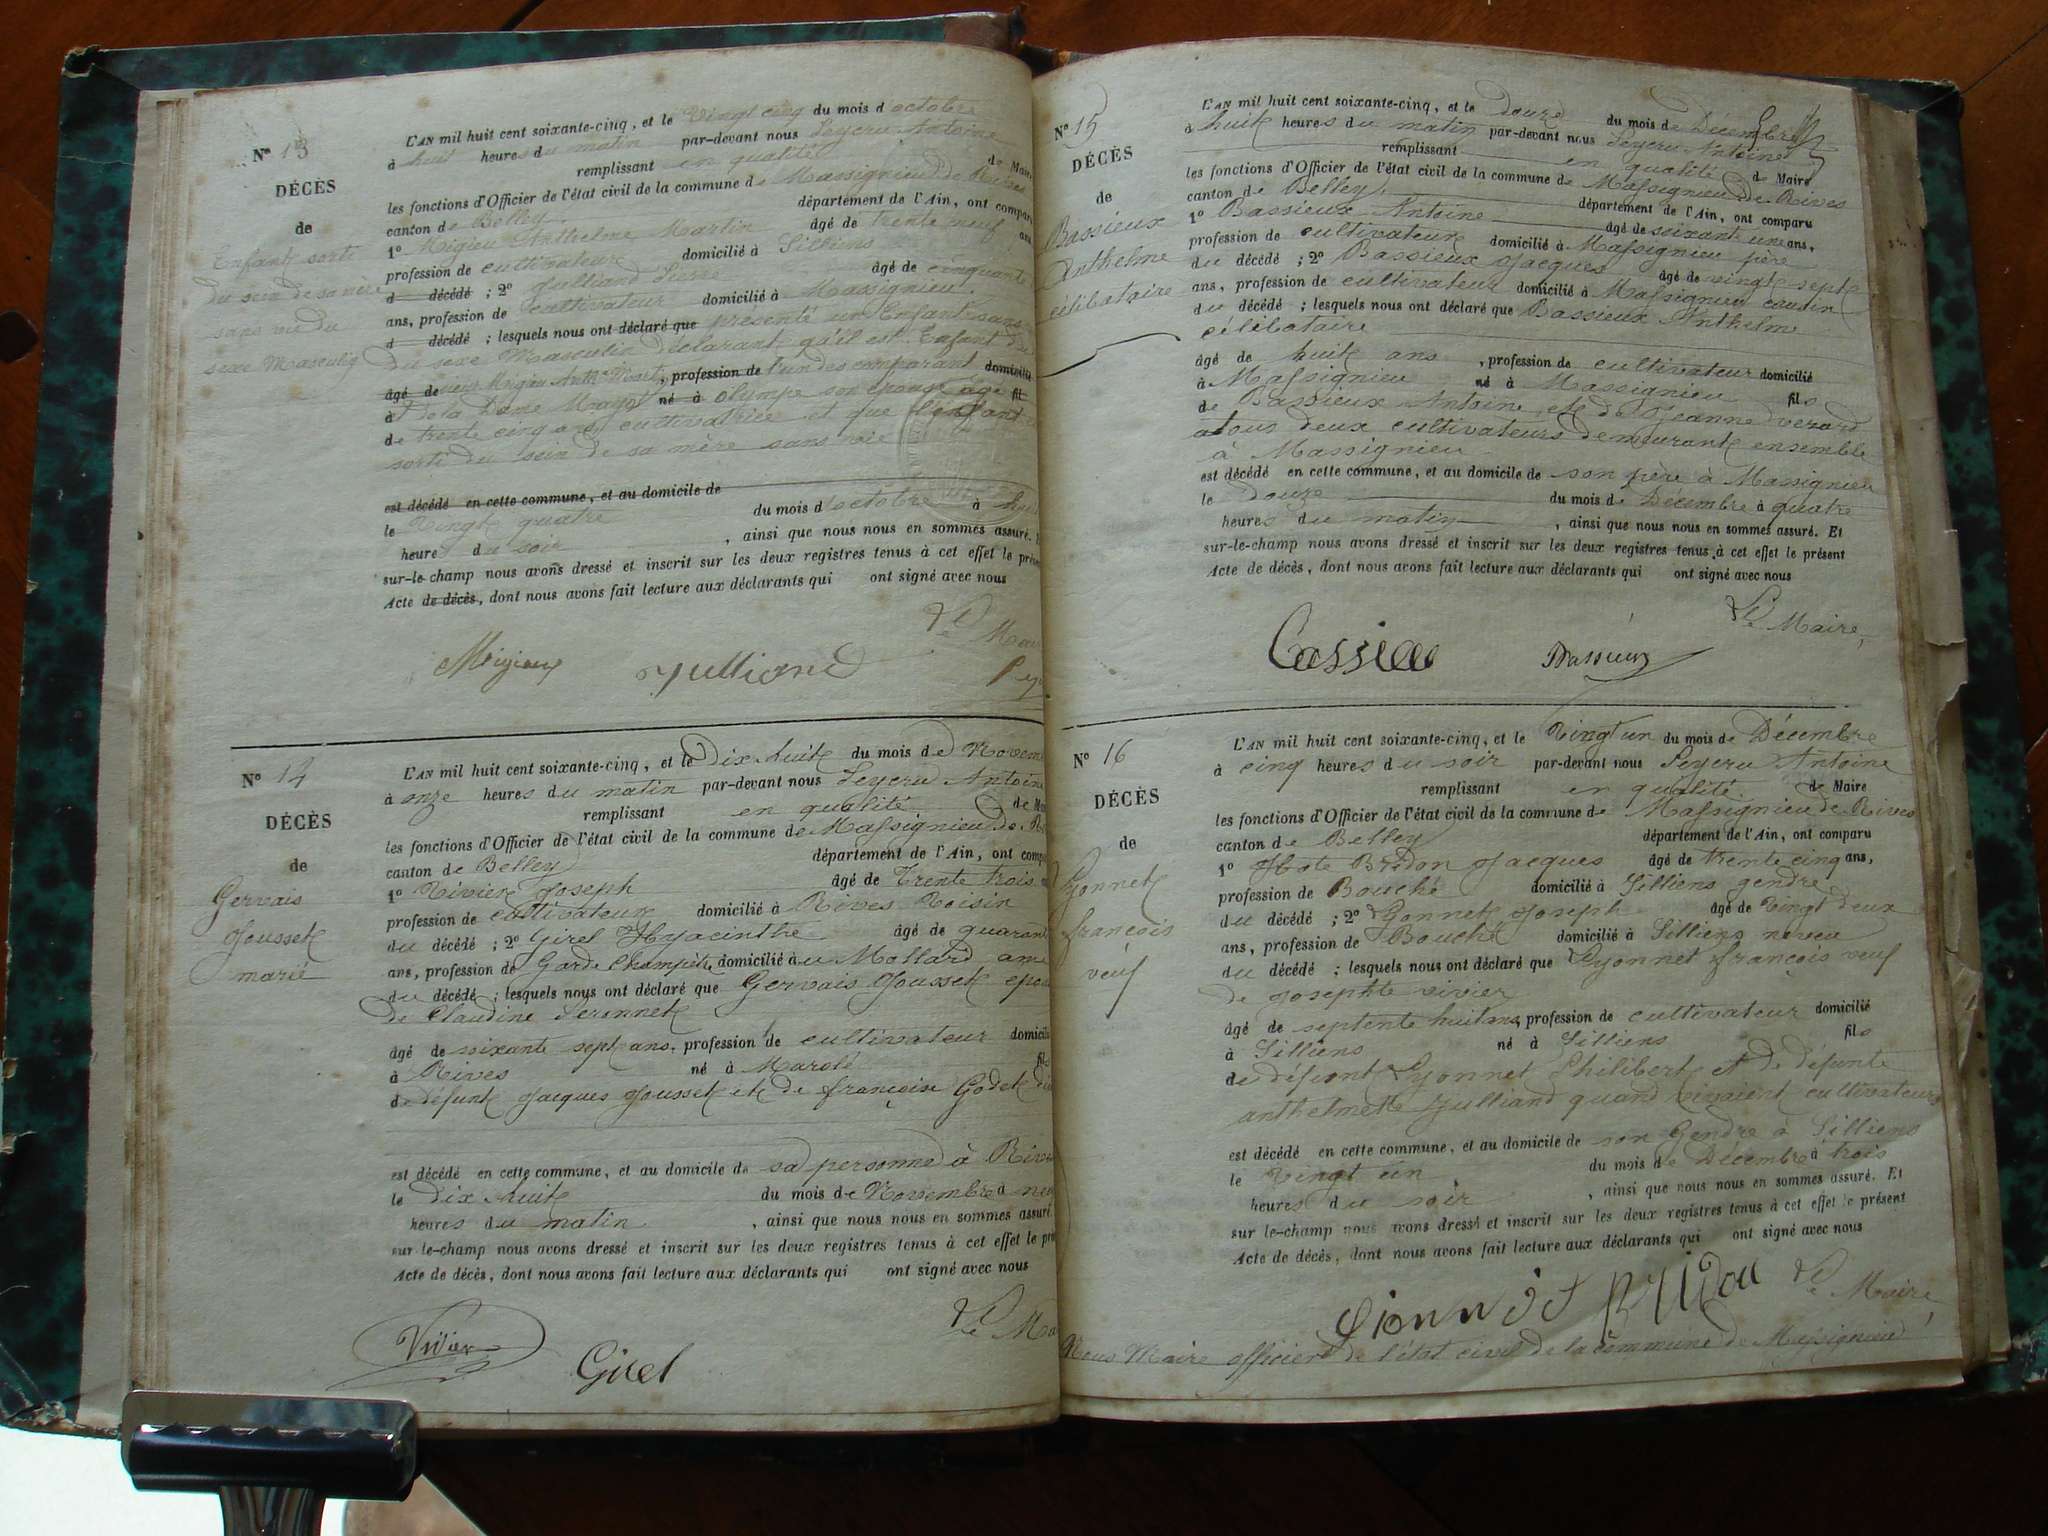 N° 13
DÉCÈS
de
Enfant sorti
du sein de sa mère
sans vie du
sexe Masculin
L'AN mil huit cent soixante-cinq, et le Vingt cinq du mois d'octobre
à huit heures du matin par-devant nous Peyeru Antoine
remplissant en qualité de Maire
les fonctions d'Officier de l'état civil de la commune de Massignieu de Rives
canton de Belley département de l'Ain, ont comparu
1° Migieu Anthelme Martin âgé de trente neuf ans
profession de cultivateur domicilié à Silliens
d décédé ; 2° Julliand Pierre âgé de cinquante
ans, profession de cultivateur domicilié à Massignieu.
d décédé ; lesquels nous ont déclaré que présenté un Enfant sans
du sexe Masculin déclarant qu'il est Enfant du
âgé de sieur Migieu Anth. Martin, profession de l'un des comparant domicilié
à et de la Dame né à olympe son épouse âgé fil
de trente cinq ans cultivatrice et que l'enfant
sorti du sein de sa mère sans vie
est décédé en cette commune, et au domicile de
le Vingt quatre du mois d'octobre à
heure du soir , ainsi que nous nous en sommes assuré.
sur-le-champ nous avons dressé et inscrit sur les deux registres tenus à cet effet le prése
Acte de décès, dont nous avons fait lecture aux déclarants qui ont signé avec nous
Le Mair
Migieux Julliand Pey
N° 14
DÉCÈS
de
Gervais
Jousset
marié
L'AN mil huit cent soixante-cinq, et le Dix huit du mois de Novem
à onze heures du matin par-devant nous Peyeru Antoine
remplissant en qualité de Mai
les fonctions d'Officier de l'état civil de la commune de Massignieu de Ri
canton de Belley département de l'Ain, ont compa
1° Vivier Joseph âgé de Trente trois
profession de cultivateur domicilié à Rives Voisin
du décédé ; 2° Girel Hyacinthe âgé de quarant
ans, profession de Garde Champêtre domicilié au Mollard ami
du décédé ; lesquels nous ont déclaré que Gervais Jousset epou
de Claudine Peronnet
âgé de soixante sept ans, profession de cultivateur domicilié
à Rives né à Marolé fils
de défunt Jacques Jousset et de françoise Godet
est décédé en cette commune, et au domicile de sa personne à Rives
le dix huit du mois de Novembre à neu
heures du matin , ainsi que nous nous en sommes assuré.
sur le-champ nous avons dressé et inscrit sur les deux registres tenus à cet effet le pré
Acte de décès, dont nous avons fait lecture aux déclarants qui ont signé avec nous
Le Ma
Vivier
Girel
N° 15
DÉCÈS
de
Bassieux
Anthelme
célibataire
L'AN mil huit cent soixante-cinq, et le Douze du mois de Décembre
à huit heures du matin par-devant nous Peyeru Antoine
remplissant en qualité de Maire
les fonctions d'Officier de l'état civil de la commune de Massignieu de Rives
canton de Belley département de l'Ain, ont comparu
1° Bassieux Antoine âgé de soixant un ans,
profession de cultivateur domicilié à Massignieu père
du décédé ; 2° Bassieux Jacques âgé de vingt sept
ans, profession de cultivateur domicilié à Massignieu cousin
du décédé ; lesquels nous ont déclaré que Bassieux Anthelm
célibataire
âgé de huit ans , profession de cultivateur domicilié
à Massignieu né à Massignieu fils
de Bassieux Antoine, et de Jeanne verard
tous deux cultivateurs demeurant ensemble
à Massignieu
est décédé en cette commune, et au domicile de son père à Massignieu
le Douze du mois de Décembre à quatre
heures du matin , ainsi que nous nous en sommes assuré. Et
sur-le-champ nous avons dressé et inscrit sur les deux registres tenus à cet effet le présent
Acte de décès, dont nous avons fait lecture aux déclarants qui ont signé avec nous
Le Maire,
Bassieux
N° 16
DÉCÈS
de
Gonnet
françois
veuf
L'AN mil huit cent soixante-cinq, et le Vingt un du mois de Décembre
à cinq heures du soir par-devant nous Peyeru Antoine
remplissant en qualité de Maire
les fonctions d'Officier de l'état civil de la commune de Massignieu de Rives
canton de Belley département de l'Ain, ont comparu
1° Hote Bridon Jacques âgé de trente cinq ans,
profession de Bouché domicilié à Silliens gendre
du décédé ; 2° Gonnet Joseph âgé de Vingt deux
ans, profession de Bouché domicilié à Silliens neveu
du décédé ; lesquels nous ont déclaré que Gyonnet françois veuf
de Josephte vivier
âgé de septente huit ans, profession de cultivateur domicilié
à Silliens né à Silliens fils
de défiont Gyonnet Philibert et de défunte
anthelmette Julliand quand vivaient cultivateurs
est décédé en cette commune, et au domicile de son Gendre à Silliens
le Vingt un du mois de Décembre à trois
heures du soir , ainsi que nous nous en sommes assuré. Et
sur le-champ nous avons dressé et inscrit sur les deux registres tenus à cet effet le présent
Acte de décès, dont nous avons fait lecture aux déclarants qui ont signé avec nous
Le Maire,
Nous Maire officier de l'état civil de la commune de Massignieu